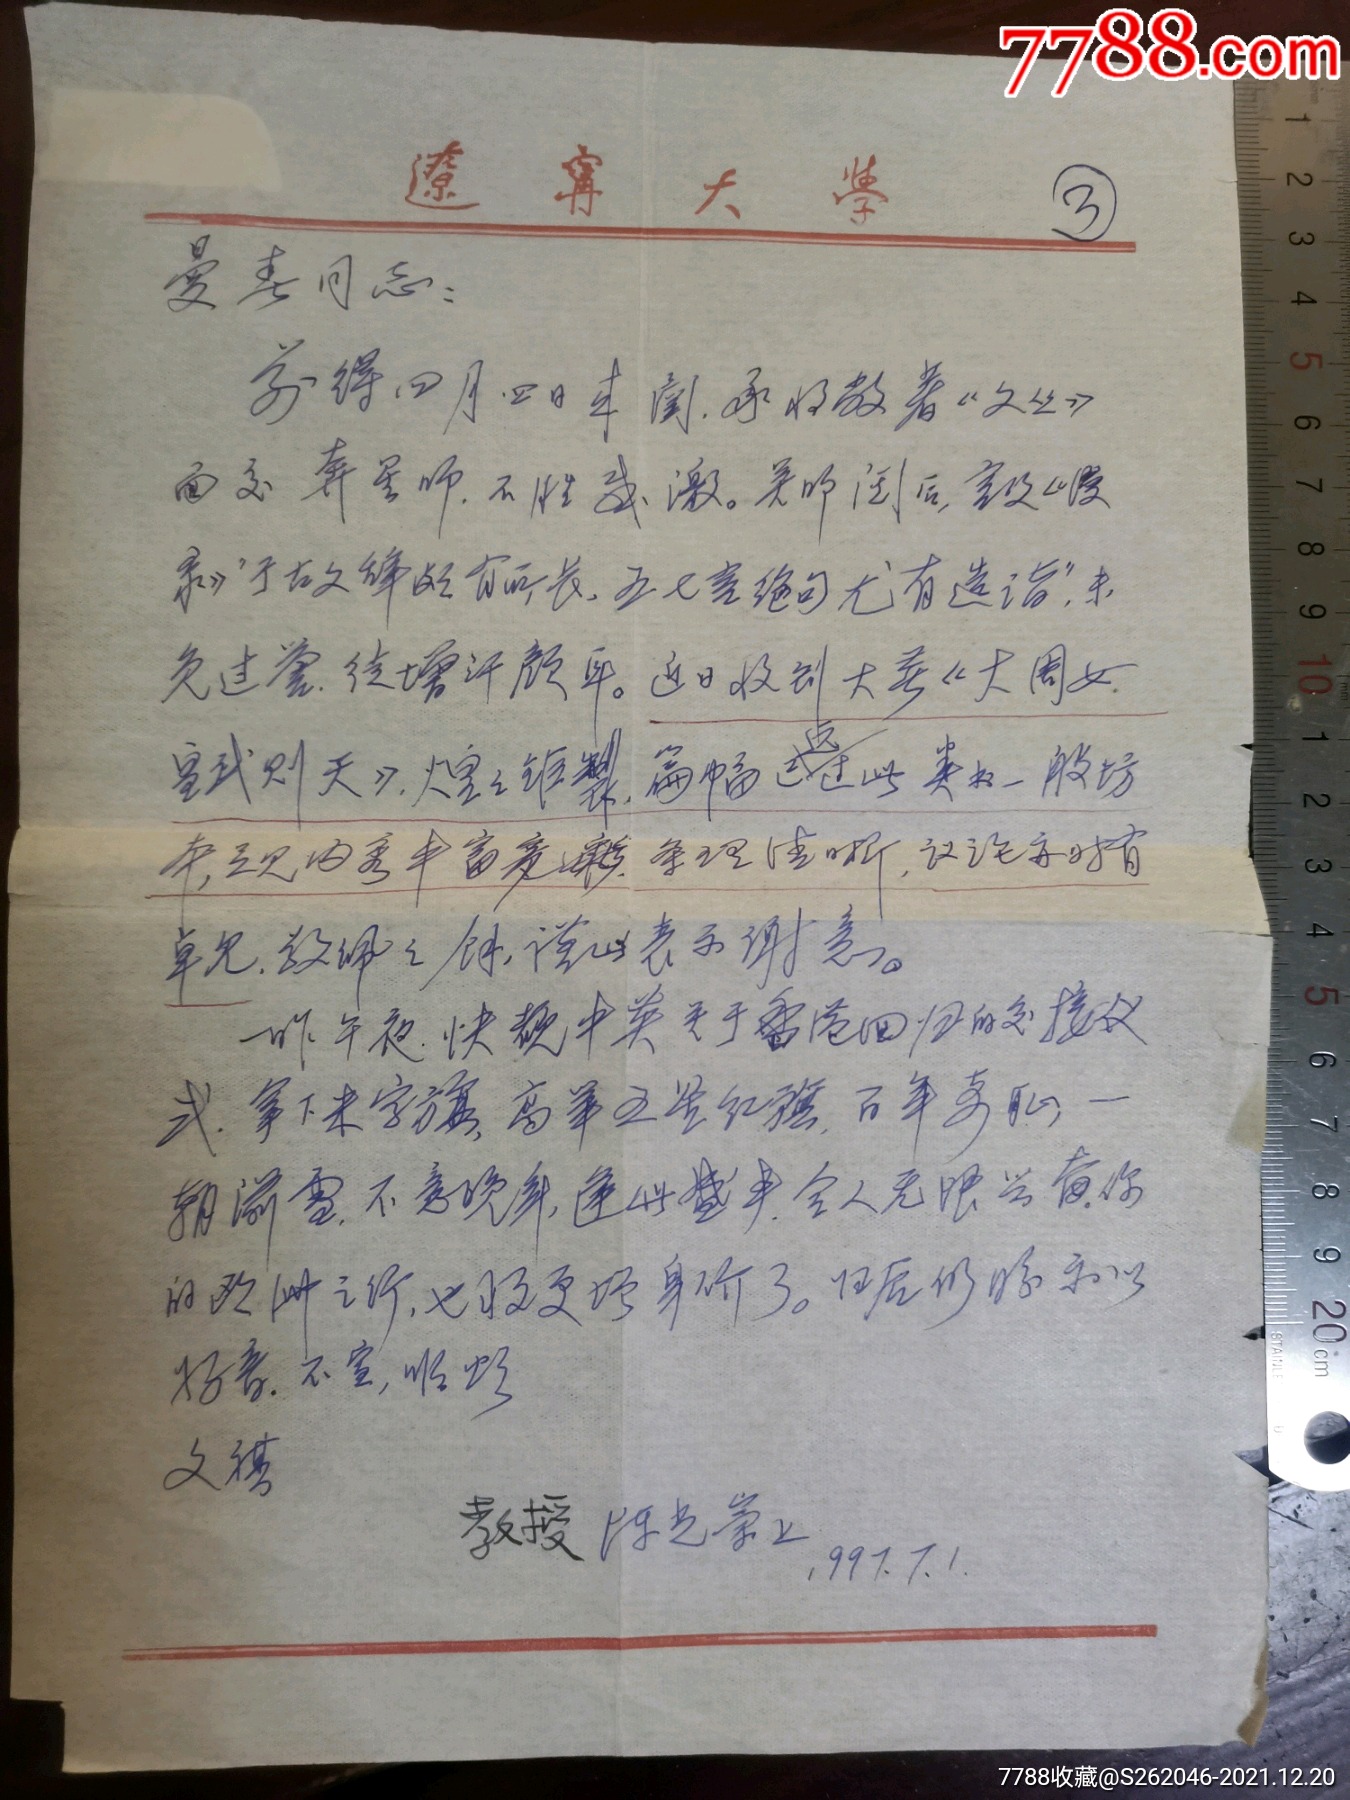 7788.com
遼寧大學
③
曼春同志:
前得四月.四日来函.承将敝著《文丛》
面交奔星师.不胜感激。吴师阅后,
于古文辞颇有所长,五七言绝句尤有造诣",未
免过誉.徒增汗颜耳。近日收到大著《大周女
皇武则天》,煌煌钜製,篇幅远过此类书一般坊
本,足见内容丰富,条理清晰,议论亦时有
卓见.敬佩之余,谨此表示谢意。
昨午夜.快觀中英关于香港回归的交接仪
式.拿下米字旗,高举五星红旗,百年奇耻,一
朝湔雪.不意晚年,逢此盛事.令人无限兴奋.你
的欧洲之行,也将更增身价了。归后仍盼示以
好音.不宣,顺颂
文祺
教授 陈光崇上
1997.7.1.
1 2 3 4 5 6 7 8 9 10 1 2 3 4 5 6 7 8 9 20 cm
STAINLE
7788收藏@S262046-2021.12.20